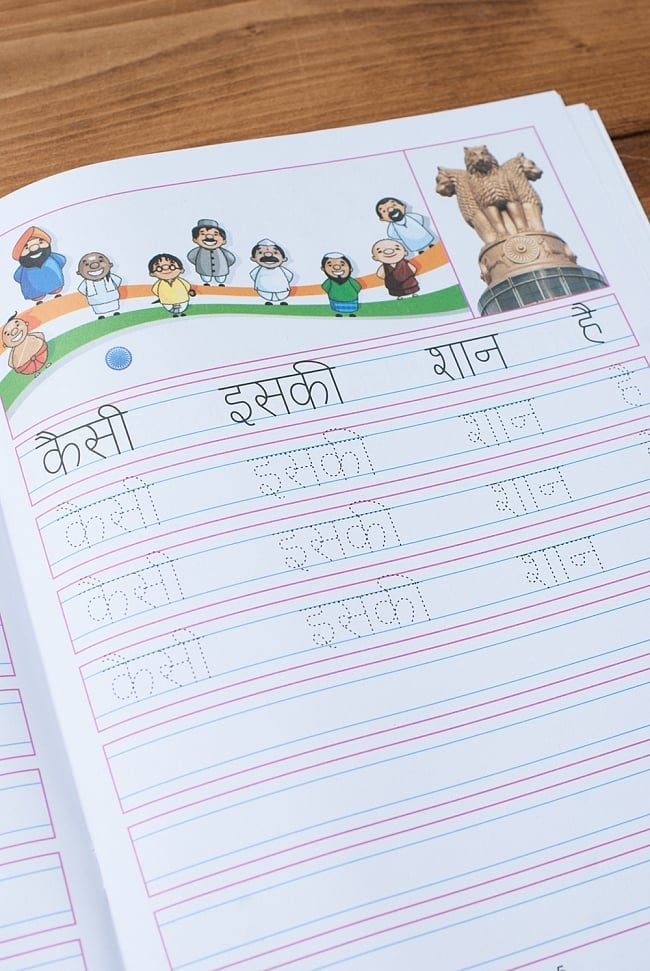 कैसी इसकी शान है
कैसी इसकी शान है
कैसी इसकी शान
कैसी इसकी शान